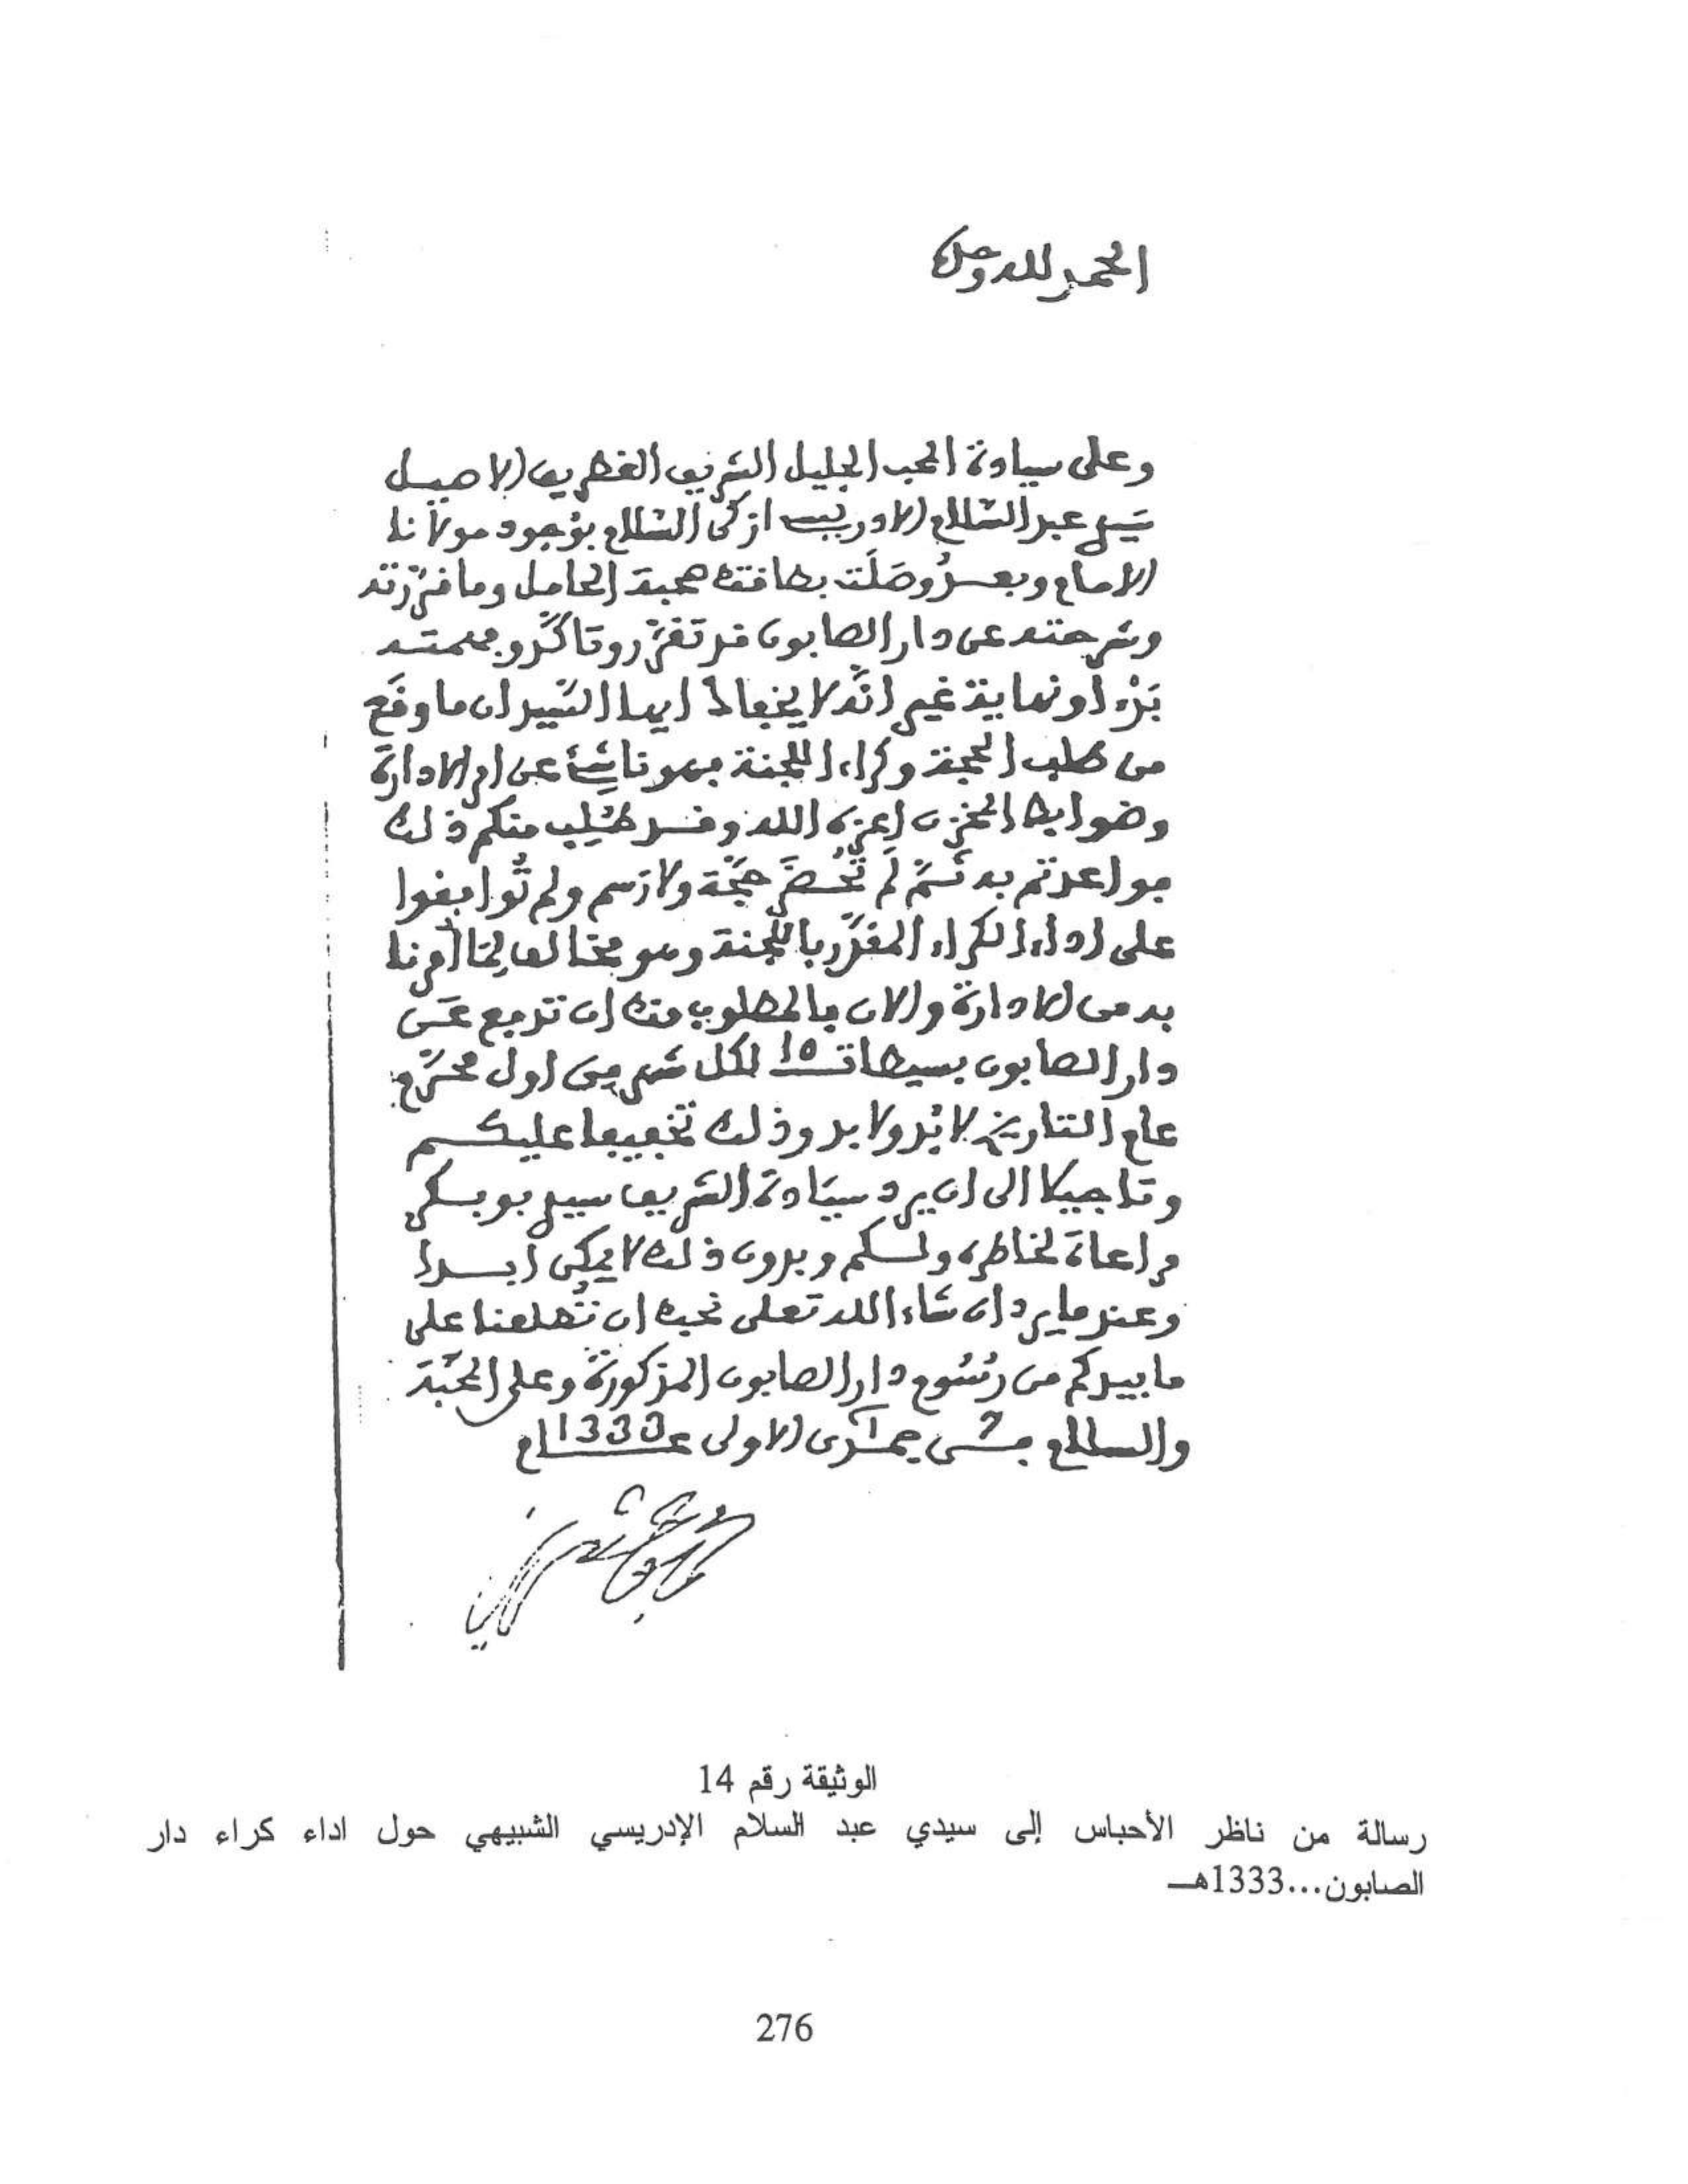 الحمد لله وحده
وعلى سيادة المحب الجليل الشريف الغطريف الاصيل
سيدي عبد السلام الادريسي ازكى السلام بوجود مولانا
الامام وبعد وصلت بطاقتك صحبة الحامل وما قررته
وشرحته عن دار الصابون قد تقرر وتأكد وفهمته
بدءا ونهاية غير انه لا يخفاك ايها السيد ان ما وقع
من طلب الحجة وكراء اللجنة فهو ناشئ عن امر الادارة
وضوابط المخزن اعزه الله وقد طلب منكم ذلك
فواعدتم به ثم لم تحضر حجة ولا رسم ولم توافقوا
على اداء الكراء المقرر باللجنة وهو مخالف لما أمرنا
به من الادارة والان فالمطلوب منك ان تدفع عن
دار الصابون بسيطات 15 لكل شهر من اول محرم
عام التاريخ لا بد ولا بد وذلك تخفيفا عليكم
وتاجيلا الى ان يرد سيادة الشريف سيدي بوبكر
مراعاة لخاطره ولكم وبدون ذلك لا يمكن أبدا
وعندما يرد ان شاء الله تعلى نحبك ان تطلعنا على
ما بيدكم من رسوم دار الصابون المذكورة وعلى المحبة
والسلام في جمادى الاولى عام 1333
الوثيقة رقم 14
رسالة من ناظر الأحباس إلى سيدي عبد السلام الإدريسي الشبيهي حول اداء كراء دار
الصابون...1333هـ
276